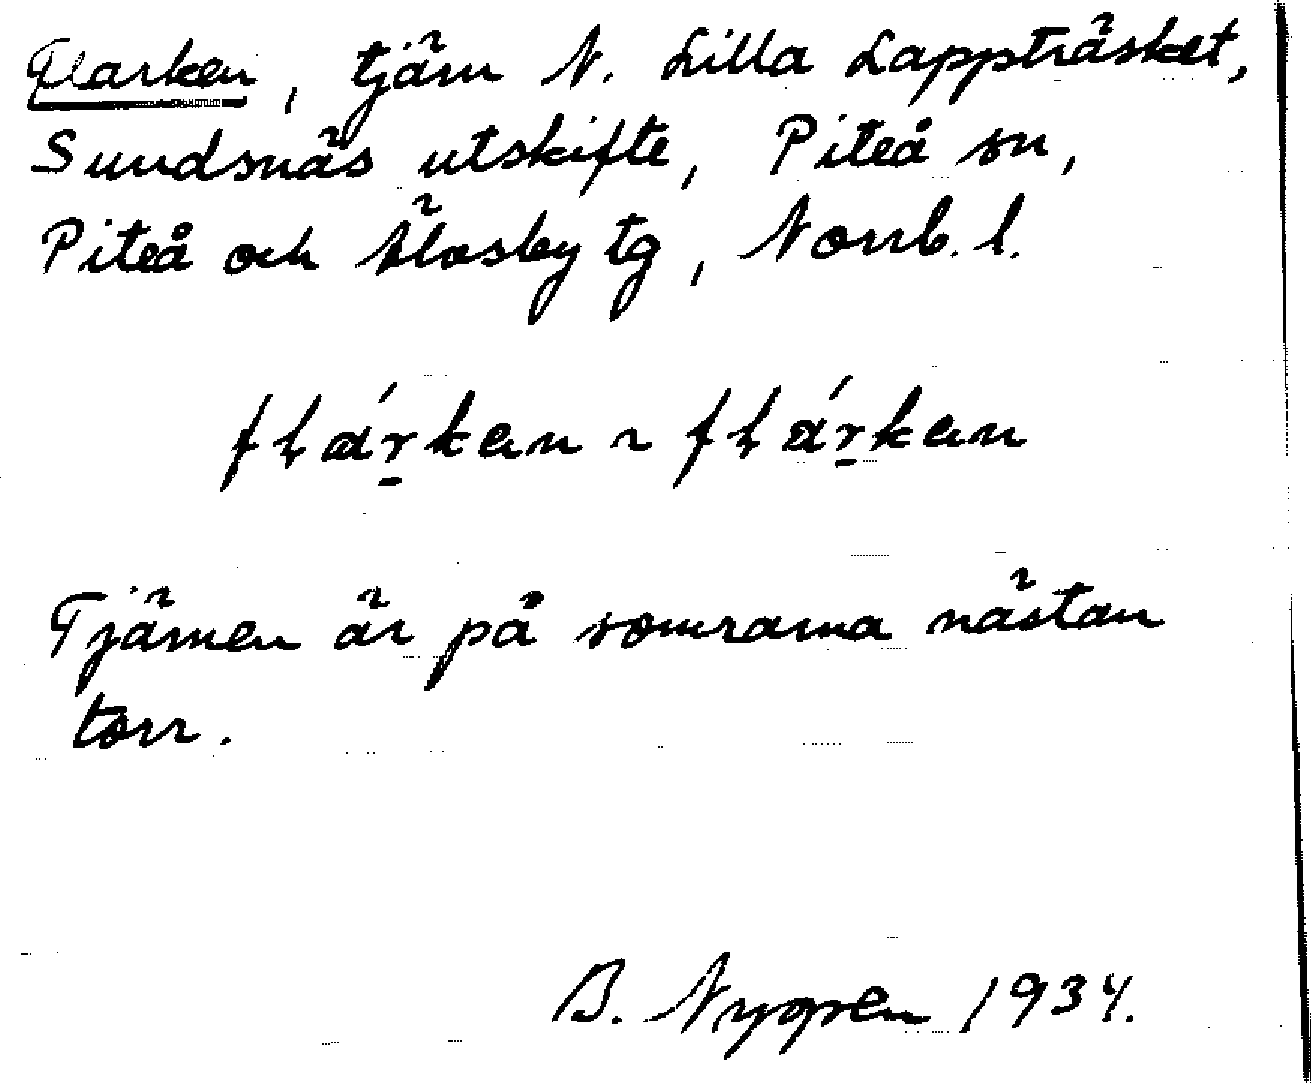 Flarken, tjärn N. Lilla Lappträsket,
Sundsnäs utskifte, Piteå sn,
Piteå och Älvsby tg, Norrb. l.
flárken ~ flárken
Tjärnen är på somrarna nästan
torr.
B. Nygren 1934.